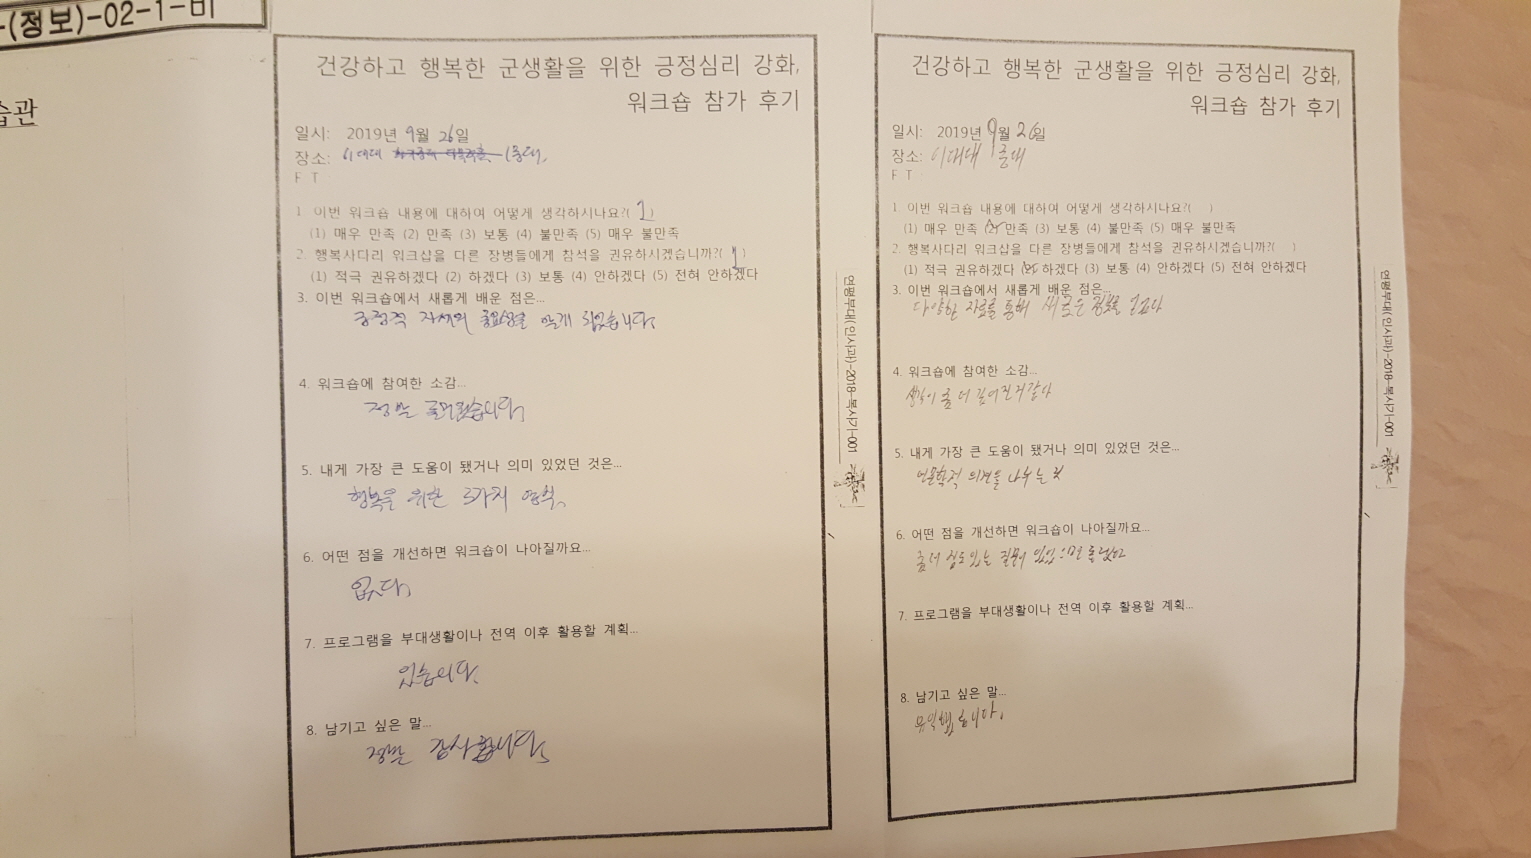 -(정보)-02-1-비
습관
건강하고 행복한 군생활을 위한 긍정심리 강화,
워크숍 참가 후기
일시: 2019년 9월 26일
장소: 이대대 1중대,
F T
1. 이번 워크숍 내용에 대하여 어떻게 생각하시나요?( 1 )
(1) 매우 만족 (2) 만족 (3) 보통 (4) 불만족 (5) 매우 불만족
2. 행복사다리 워크샵을 다른 장병들에게 참석을 권유하시겠습니까?( 1 )
(1) 적극 권유하겠다 (2) 하겠다 (3) 보통 (4) 안하겠다 (5) 전혀 안하겠다
3. 이번 워크숍에서 새롭게 배운 점은...
긍정적 자세의 중요성을 알게 되었습니다.
4. 워크숍에 참여한 소감...
정말 즐거웠습니다.
5. 내게 가장 큰 도움이 됐거나 의미 있었던 것은...
행복을 위한 3가지 영역.
6. 어떤 점을 개선하면 워크숍이 나아질까요...
없다.
7. 프로그램을 부대생활이나 전역 이후 활용할 계획...
있습니다.
8. 남기고 싶은 말...
정말 감사합니다.
연평부대(인사과)-2018-복사기-001
건강하고 행복한 군생활을 위한 긍정심리 강화,
워크숍 참가 후기
일시: 2019년 9월 26일
장소: 이대대 1중대
F T
1. 이번 워크숍 내용에 대하여 어떻게 생각하시나요?( )
(1) 매우 만족 (2) 만족 (3) 보통 (4) 불만족 (5) 매우 불만족
2. 행복사다리 워크샵을 다른 장병들에게 참석을 권유하시겠습니까?( )
(1) 적극 권유하겠다 (2) 하겠다 (3) 보통 (4) 안하겠다 (5) 전혀 안하겠다
3. 이번 워크숍에서 새롭게 배운 점은...
다양한 자료를 통해 새로운 정보를 얻었다
4. 워크숍에 참여한 소감...
생각이 좀 더 깊어진거같다
5. 내게 가장 큰 도움이 됐거나 의미 있었던 것은...
인문학적 의견을 나누는 것
6. 어떤 점을 개선하면 워크숍이 나아질까요...
좀 더 심도있는 질문이 있었으면
7. 프로그램을 부대생활이나 전역 이후 활용할 계획...
8. 남기고 싶은 말...
유익했습니다.
연평부대(인사과)-2018-복사기-001